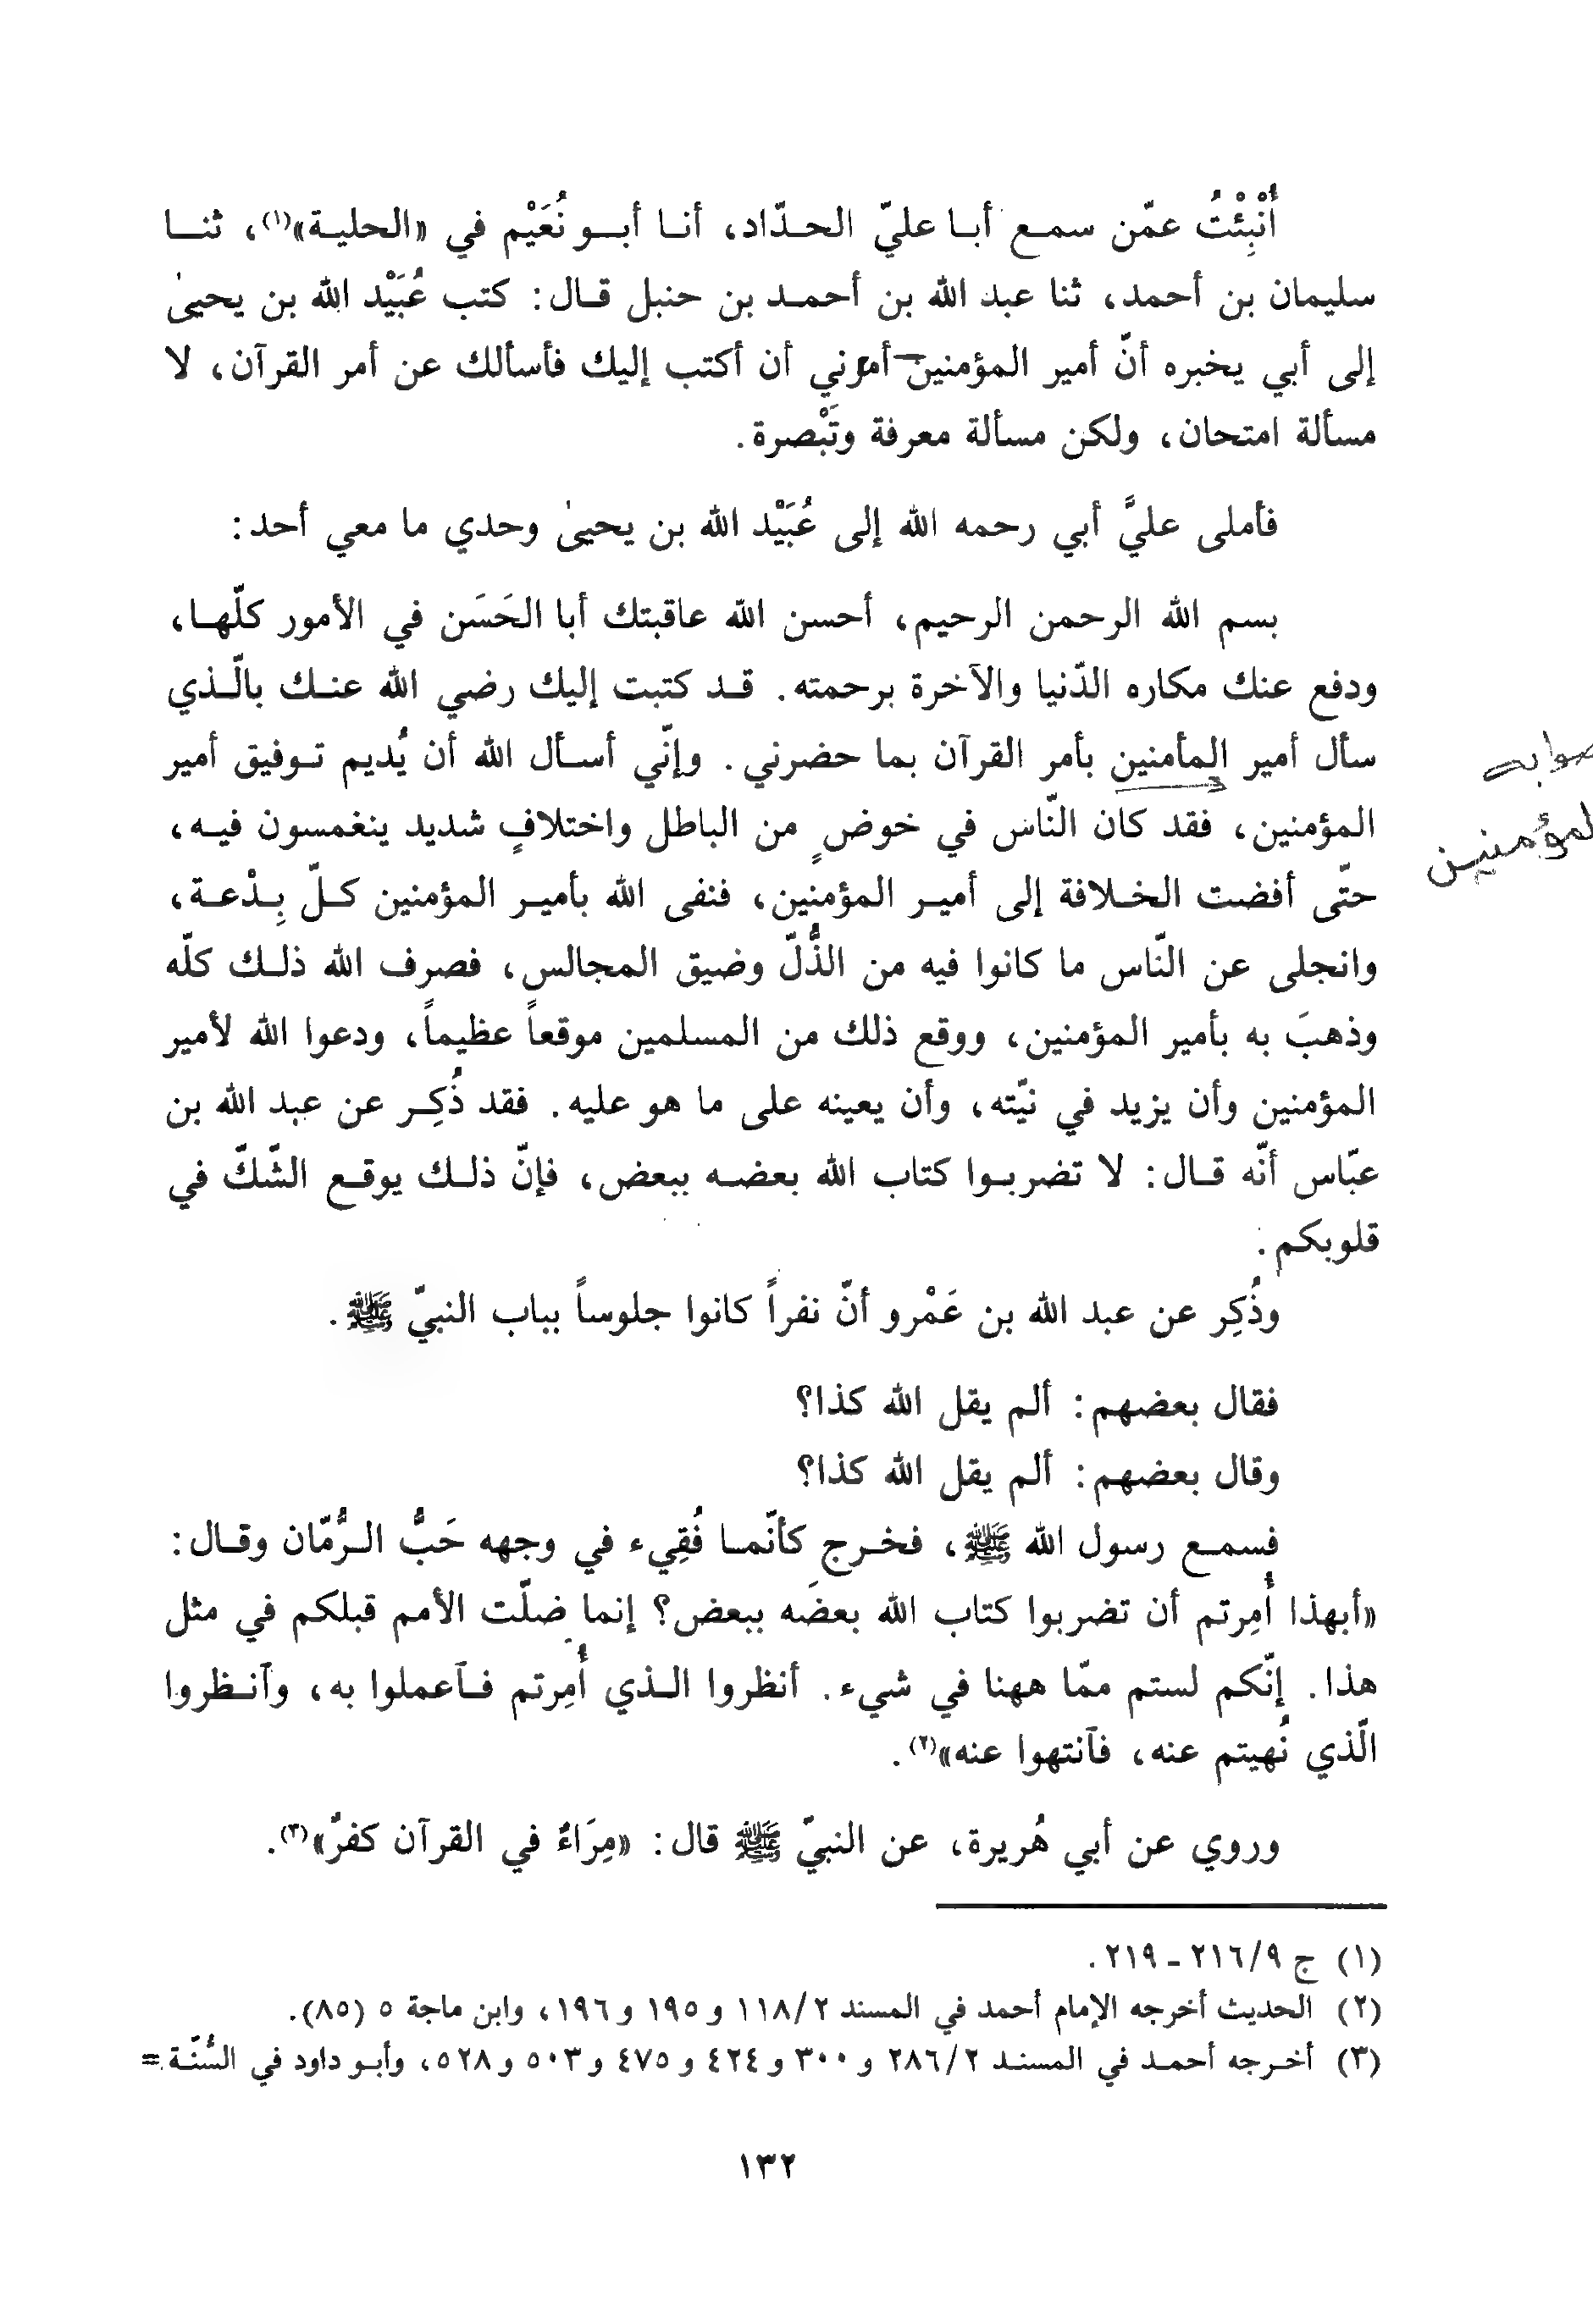 أُنْبِئْتُ عمّن سمع أبا عليّ الحدّاد، أنا أبو نُعَيْم في «الحلية»(١)، ثنا
سليمان بن أحمد، ثنا عبد الله بن أحمد بن حنبل قال: كتب عُبَيْد الله بن يحيىٰ
إلى أبي يخبره أنّ أمير المؤمنين أمرني أن أكتب إليك فأسألك عن أمر القرآن، لا
مسألة امتحان، ولكن مسألة معرفة وتَبْصرة.
فأملى عليَّ أبي رحمه الله إلى عُبَيْد الله بن يحيىٰ وحدي ما معي أحد:
بسم الله الرحمن الرحيم، أحسن الله عاقبتك أبا الحَسَن في الأمور كلّها،
ودفع عنك مكاره الدّنيا والآخرة برحمته. قد كتبت إليك رضي الله عنك بالّذي
سأل أمير المأمنين بأمر القرآن بما حضرني. وإنّي أسأل الله أن يُديم توفيق أمير
صوابه
المؤمنين، فقد كان النّاس في خوضٍ من الباطل واختلافٍ شديد ينغمسون فيه،
المؤمنين
حتّى أفضت الخلافة إلى أمير المؤمنين، فنفى الله بأمير المؤمنين كلّ بِدْعة،
وانجلى عن النّاس ما كانوا فيه من الذُّلّ وضيق المجالس، فصرف الله ذلك كلّه
وذهبَ به بأمير المؤمنين، ووقع ذلك من المسلمين موقعاً عظيماً، ودعوا الله لأمير
المؤمنين وأن يزيد في نيّته، وأن يعينه على ما هو عليه. فقد ذُكِر عن عبد الله بن
عبّاس أنّه قال: لا تضربوا كتاب الله بعضه ببعض، فإنّ ذلك يوقع الشّكّ في
قلوبكم.
وذُكِر عن عبد الله بن عَمْرو أنّ نفراً كانوا جلوساً بباب النبيّ ﷺ.
فقال بعضهم: ألم يقل الله كذا؟
وقال بعضهم: ألم يقل الله كذا؟
فسمع رسول الله ﷺ، فخرج كأنّما فُقِيء في وجهه حَبُّ الرُّمّان وقال:
«أبهذا أُمِرتم أن تضربوا كتاب الله بعضَه ببعض؟ إنما ضلّت الأمم قبلكم في مثل
هذا. إنّكم لستم ممّا ههنا في شيء. أنظروا الذي أُمِرتم فٱعملوا به، وٱنظروا
الّذي نُهيتم عنه، فٱنتهوا عنه»(٢).
وروي عن أبي هُريرة، عن النبيّ ﷺ قال: «مِرَاءٌ في القرآن كفرٌ»(٣).
(١) ج ٢١٦/٩ ـ ٢١٩.
(٢) الحديث أخرجه الإمام أحمد في المسند ١١٨/٢ و ١٩٥ و ١٩٦، وابن ماجة ٥ (٨٥).
(٣) أخرجه أحمد في المسند ٢٨٦/٢ و ٣٠٠ و ٤٢٤ و ٤٧٥ و ٥٠٣ و ٥٢٨، وأبو داود في السُّنّة =
١٣٢